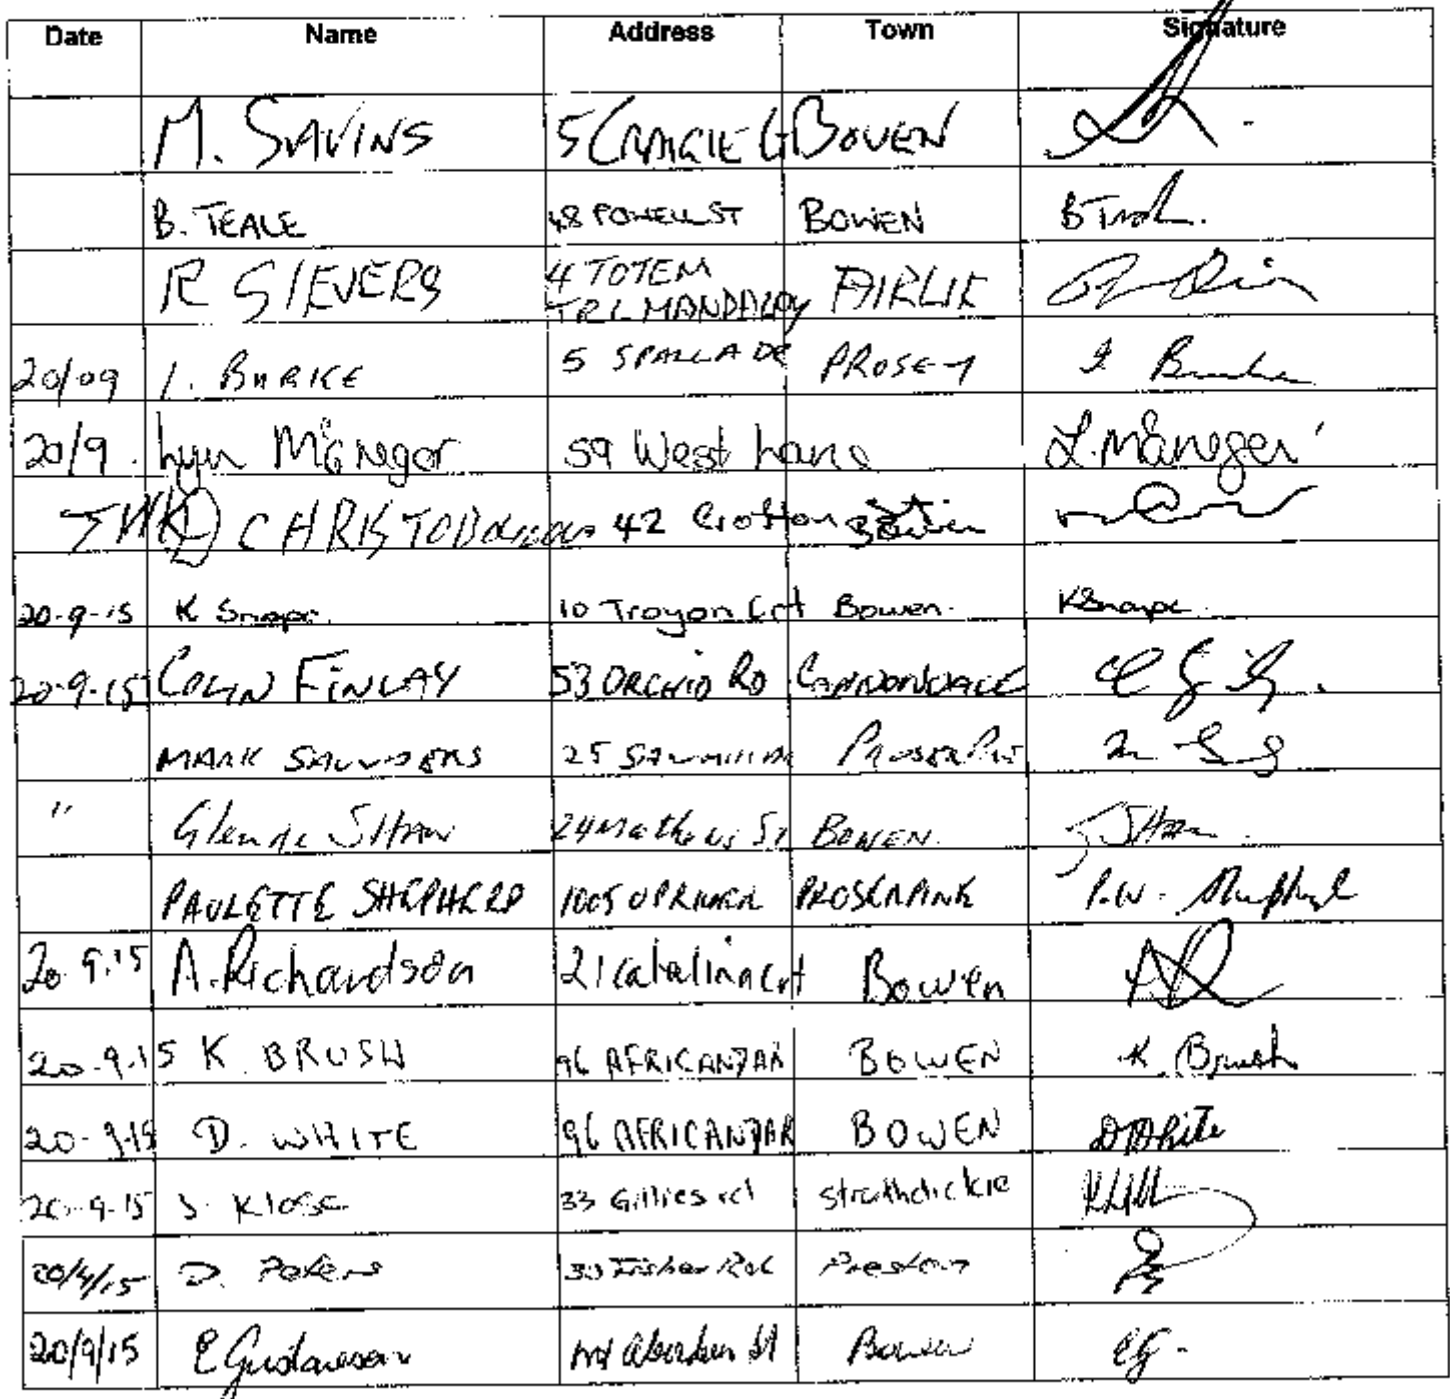 Date Name Address Town Signature
M. SAVINS 5 CRAIGIE BOWEN
B. TEALE 48 POWELL ST BOWEN B Teale.
R SIEVERS 4 TOTEM
TRL MANDALAY AIRLIE
20/09 I. BURKE 5 SPALLA DR PROSE-Y I Burke
20/9. Lyn McGregor 59 West Lane L. McGregor
42 Crofton Bowen
20-9-15 K Snape 10 Troyon Crt Bowen. K Snape.
20-9-15 COLIN FINLAY 53 ORCHID RD CANNONVALE
MARK SAUNDERS 25 PROSERPINE
" Glenda SHAW 24 Mathews St BOWEN. SHAW
PAULETTE SHEPHERD PROSERPINE P.W. Shepherd
20.9.15 A. Richardson 21 Catalina crt Bowen AR
20-9-15 K. BRUSH 96 AFRICANDAR BOWEN K. Brush
20-9-15 D. WHITE 96 AFRICANDAR BOWEN D White
20-9-15 J. Klose 33 Gillies rd strathdickie
20/9/15 D. Peters 30 Fisher Rd Preston
20/9/15 E Gustavson Aberdeen St Bowen EG.